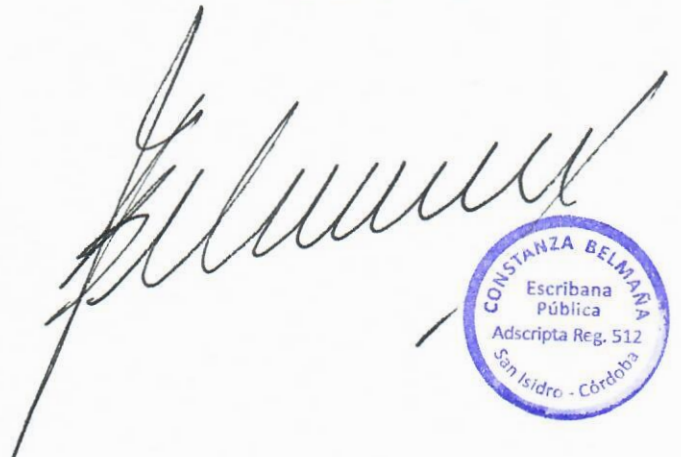 CONSTANZA BELMAÑA
Escribana
Pública
Adscripta Reg. 512
San Isidro - Córdoba